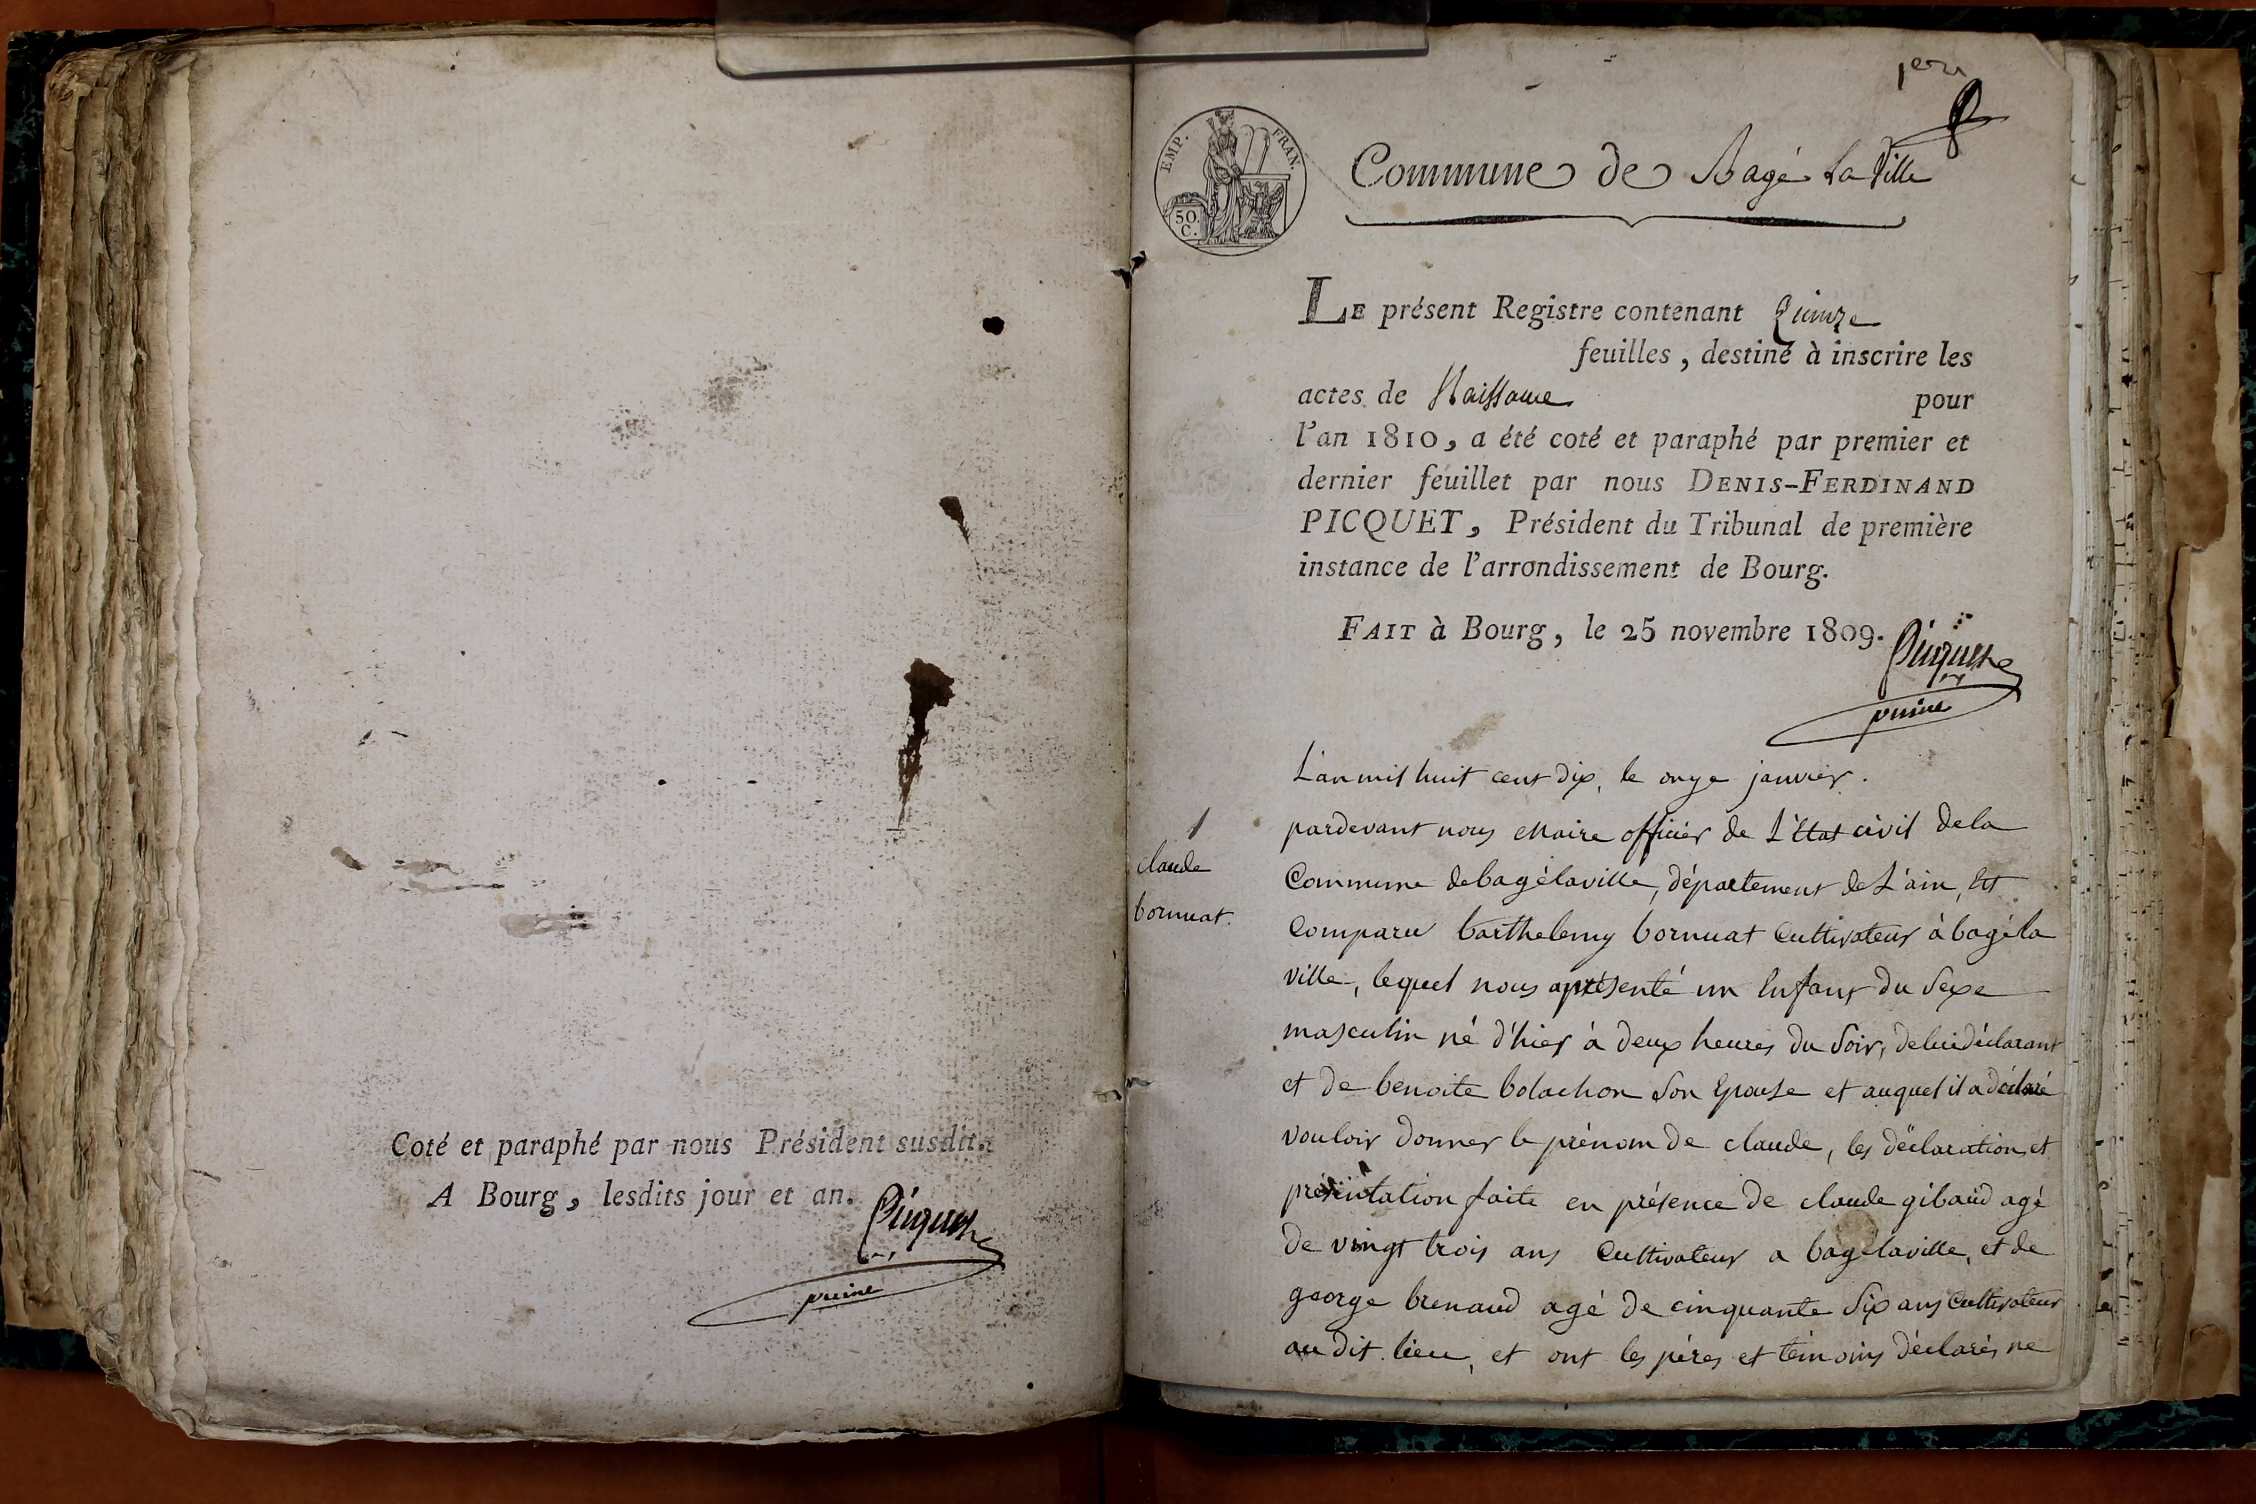 Coté et paraphé par nous Président susdit.
A Bourg, lesdits jour et an.
Picquet
1er
EMP. FRAN.
50
C.
Commune de Bagé la Ville
LE présent Registre contenant Quinze
feuilles, destiné à inscrire les
actes de Naissance pour
l'an 1810, a été coté et paraphé par premier et
dernier feuillet par nous DENIS-FERDINAND
PICQUET, Président du Tribunal de première
instance de l'arrondissement de Bourg.
FAIT à Bourg, le 25 novembre 1809.
Picquet
1
claude
bornuat.
L'an mil huit cent dix, le onze janvier.
pardevant nous Maire officier de L'état civil dela
Commune debagélaville, département deL'ain, Est
Comparu barthelemy bornuat Cultivateur à bagéla
ville, lequel nous aprésenté un Enfant du Sexe
masculin né d'hier à deux heures du Soir, deluidéclarant
et de benoite bolachon Son Epouse et auquel il a déclaré
vouloir donner le prénom de claude, les déclaration et
présentation faite en présence de claude gibaud agé
de vingt trois ans Cultivateur a bagélaville, et de
george brenaud agé de cinquante Six ans Cultivateur
au dit lieu, et ont les péres et témoins déclarés ne